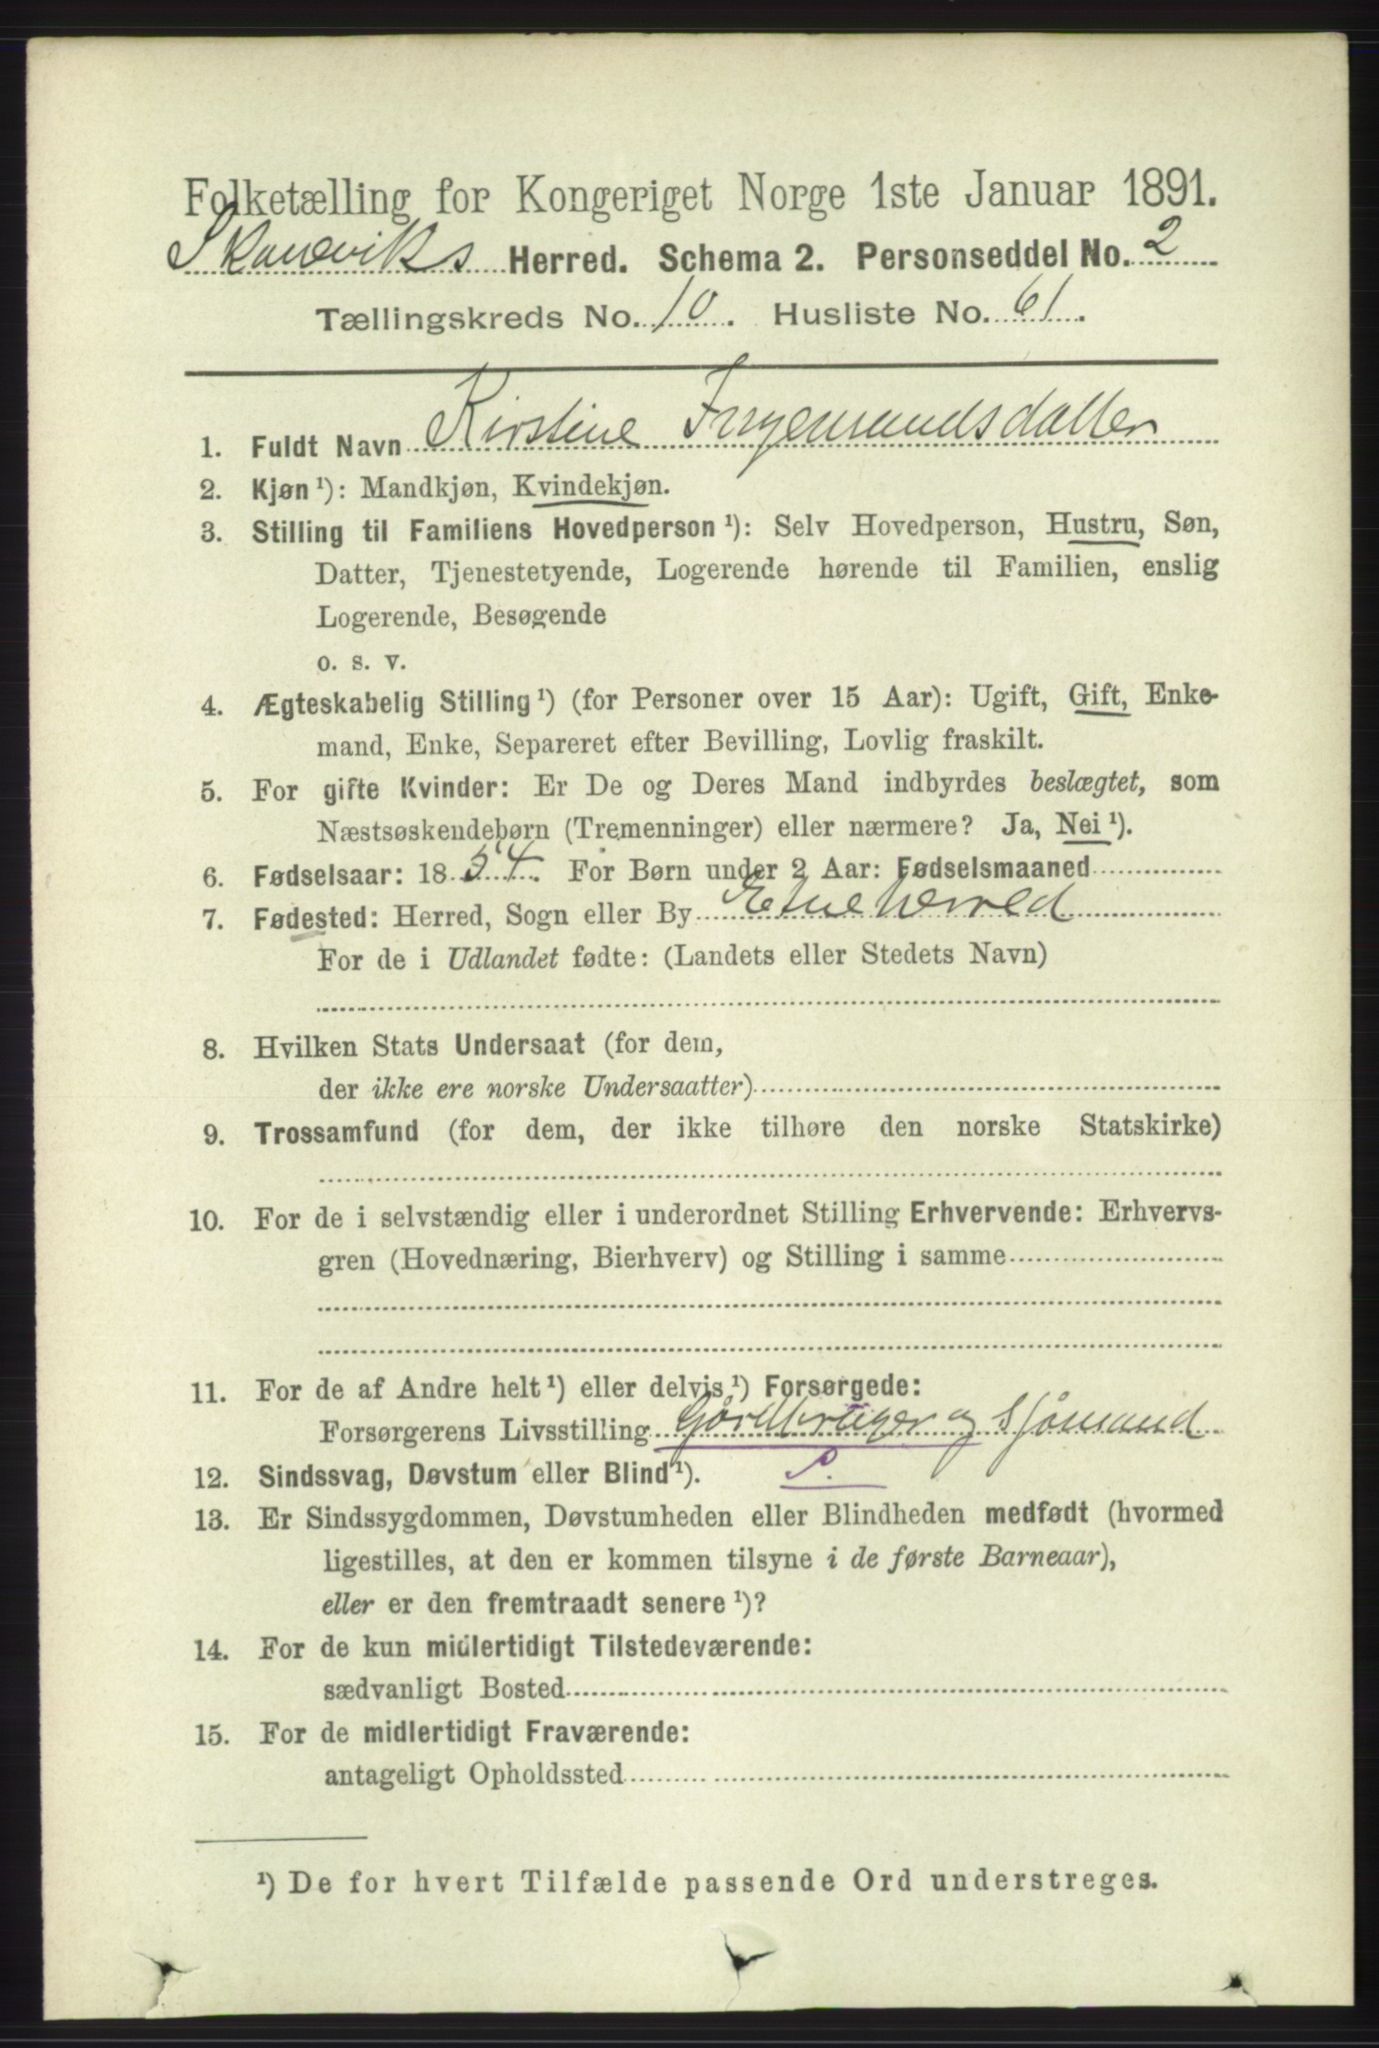 Folketælling for Kongeriget Norge 1ste Januar 1891.
Skaneviks Herred. Schema 2. Personseddel No. 2
Tællingskreds No. 10. Husliste No. 61.
1. Fuldt Navn Kirstine Ingemundsdatter
2. Kjøn ¹): Mandkjøn, Kvindekjøn.
3. Stilling til Familiens Hovedperson ¹): Selv Hovedperson, Hustru, Søn,
Datter, Tjenestetyende, Logerende hørende til Familien, enslig
Logerende, Besøgende
o. s. v.
4. Ægteskabelig Stilling ¹) (for Personer over 15 Aar): Ugift, Gift, Enke-
mand, Enke, Separeret efter Bevilling, Lovlig fraskilt.
5. For gifte Kvinder: Er De og Deres Mand indbyrdes beslægtet, som
Næstsøskendebørn (Tremenninger) eller nærmere? Ja, Nei ¹).
6. Fødselsaar: 1854. For Børn under 2 Aar: Fødselsmaaned
7. Fødested: Herred, Sogn eller By Etne herred
For de i Udlandet fødte: (Landets eller Stedets Navn)
8. Hvilken Stats Undersaat (for dem,
der ikke ere norske Undersaatter)
9. Trossamfund (for dem, der ikke tilhøre den norske Statskirke)
10. For de i selvstændig eller i underordnet Stilling Erhvervende: Erhvervs-
gren (Hovednæring, Bierhverv) og Stilling i samme
11. For de af Andre helt ¹) eller delvis ¹) Forsørgede:
Forsørgerens Livsstilling Gårdbruger og Sjømand
12. Sindssvag, Døvstum eller Blind ¹). S.
13. Er Sindssygdommen, Døvstumheden eller Blindheden medfødt (hvormed
ligestilles, at den er kommen tilsyne i de første Barneaar),
eller er den fremtraadt senere ¹)?
14. For de kun midlertidigt Tilstedeværende:
sædvanligt Bosted
15. For de midlertidigt Fraværende:
antageligt Opholdssted
¹) De for hvert Tilfælde passende Ord understreges.